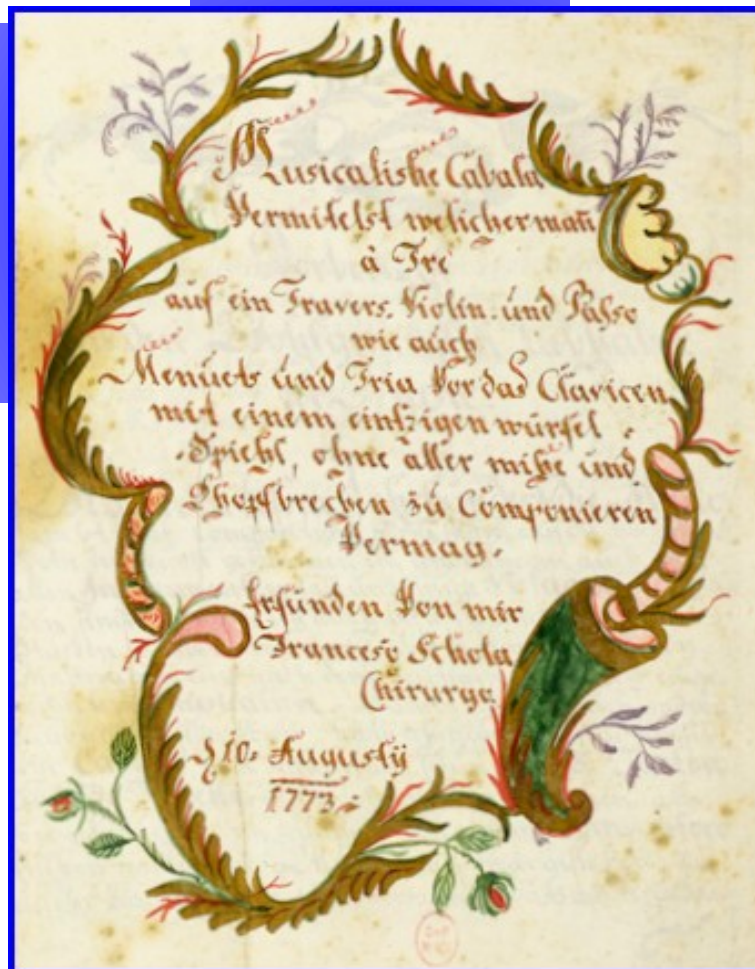 Musicalishe Cabala
Vermitelst welicher man̄
à Tre
auf ein Travers. Violin. und Passo
wie auch
Menuets und Tria Vor das Clavicen
mit einem eintzigen würfel
Spiehl, ohne aller mihe und
Khopfbrechen zu Componieren
Vermag.
Erfunden Von mir
Francesco Schola
Chirurgo
10. Augustÿ
1773